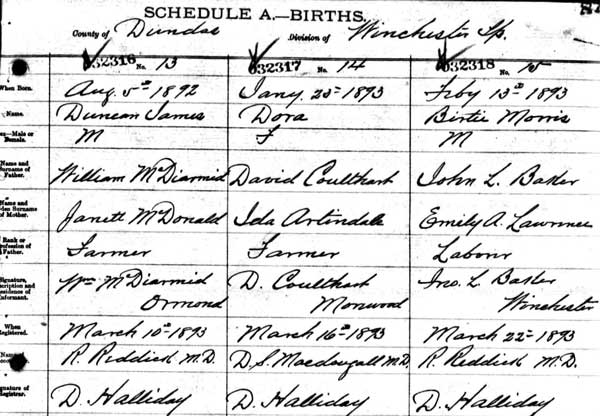 SCHEDULE A.—BIRTHS.
County of Dundas Division of Winchester Tp.
032316 No. 13 032317 No. 14 032318 No. 15
When Born. Aug. 5th 1892 Jany. 25th 1893 Feby 13th 1893
Name. Duncan James Dora Birtie Morris
Sex—Male or Female. M F M
Name and Surname of Father. William McDiarmid David Coulthart John L. Baker
Name and Maiden Surname of Mother. Janett McDonald Ida Artindale Emily A. Lawrence
Rank or Profession of Father. Farmer Farmer Labour
Signature, Description and Residence of Informant. Wm McDiarmid Ormond D. Coulthart Morwood Jno. L. Baker Winchester
When Registered. March 10th 1893 March 16th 1893 March 22nd 1893
R. Reddick M.D. D. S. Macdougall M.D. R. Reddick M.D.
Signature of Registrar. D. Halliday D. Halliday D. Halliday